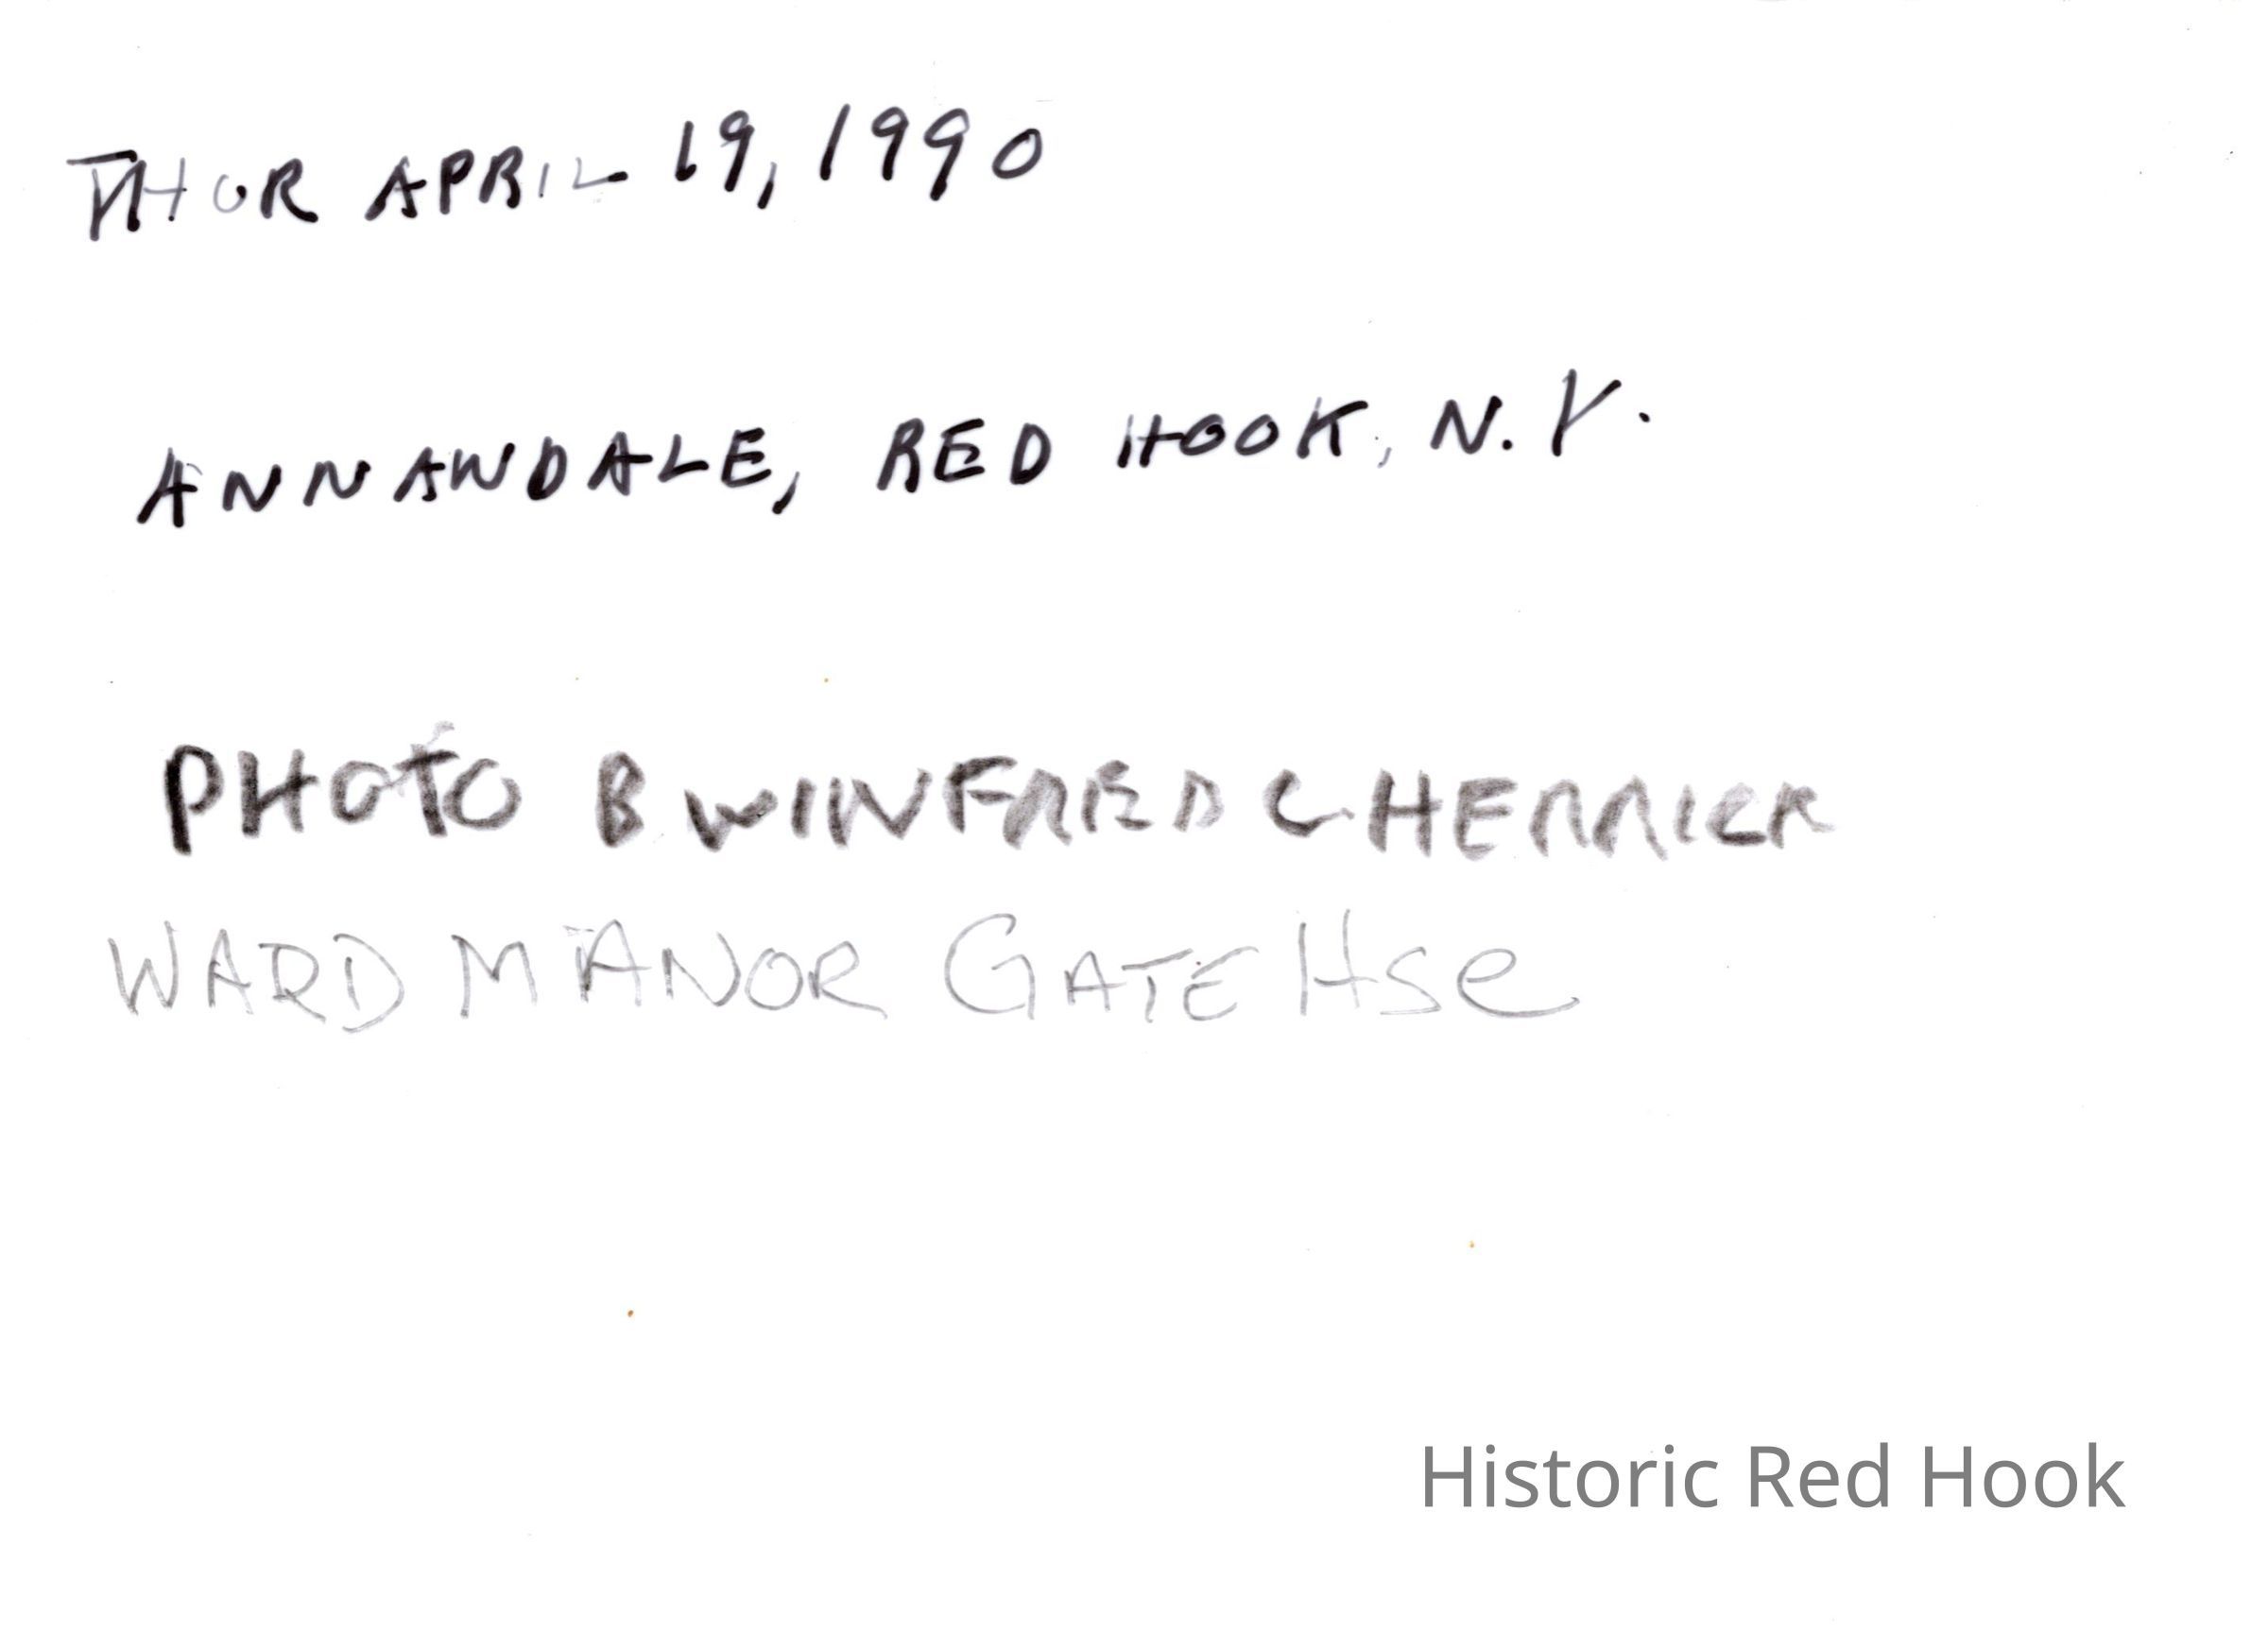 THOR APRIL 19, 1990
ANNANDALE, RED HOOK, N.Y.
PHOTO B WINFRED C HERRICK
WARD MANOR GATE Hse
Historic Red Hook